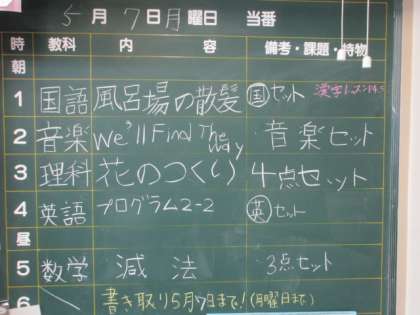 5月7日月曜日 当番
時 教科 内容 備考・課題・特物
朝
1 国語 風呂場の散髪 国セット 漢字
2 音楽 We'll Find The Way 音楽セット
3 理科 花のつくり 4点セット
4 英語 プログラム2-2 英セット
昼
5 数学 減法 3点セット
6 書き取り5月7日まで!(月曜日まで)